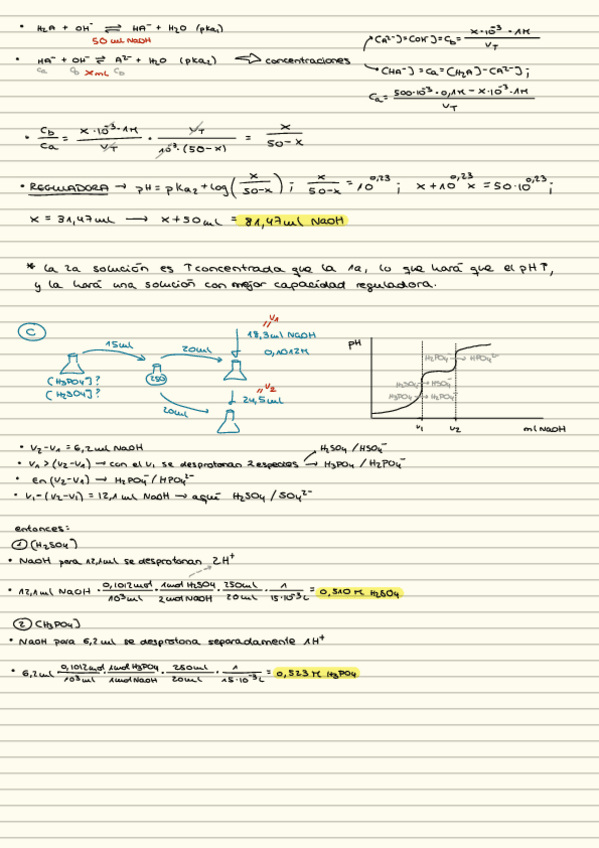 • H₂A + OH⁻ ⇌ HA⁻ + H₂O (pka₁)
50 ml NaOH
• HA⁻ + OH⁻ ⇌ A²⁻ + H₂O (pka₂) ⇨ concentraciones
Ca Cb x mL Cb
[A²⁻] = [OH⁻] = Cb = x·10⁻³·1M / VT
[HA⁻] = Ca = [H₂A] - [A²⁻] ;
Ca = 500·10⁻³·0,1M - x·10⁻³·1M / VT
• Cb/Ca = x·10⁻³·1M / VT · VT / 10⁻³·(50-x) = x / 50-x
• REGULADORA → pH = pka₂ + log(x / 50-x) ; x / 50-x = 10^0,23 ; x + 10^0,23 x = 50·10^0,23 ;
x = 31,47 ml → x + 50 ml = 81,47 ml NaOH
* La 2a solución es ↑concentrada que la 1a, lo que hará que el pH↑,
y la hará una solución con mejor capacidad reguladora.
C
15ml 20ml V₁ 18,3 ml NaOH
0,1012M
[H₃PO₄]?
[H₂SO₄]?
250
20ml V₂ 24,5 ml
pH
H₂PO₄⁻ → HPO₄²⁻
H₂SO₄ → HSO₄⁻
H₃PO₄ → H₂PO₄⁻
V₁ V₂ ml NaOH
• V₂-V₁ = 6,2 ml NaOH
• V₁ > (V₂-V₁) → con el V₁ se desprotonan 2 especies H₂SO₄ / HSO₄⁻
H₃PO₄ / H₂PO₄⁻
• en (V₂-V₁) → H₂PO₄⁻ / HPO₄²⁻
• V₁-(V₂-V₁) = 12,1 ml NaOH → aquí H₂SO₄ / SO₄²⁻
entonces:
① [H₂SO₄]
• NaOH para 12,1ml se desprotonan 2H⁺
• 12,1 ml NaOH · 0,1012mol / 10³ml · 1mol H₂SO₄ / 2mol NaOH · 250ml / 20ml · 1 / 15·10⁻³L = 0,510 M H₂SO₄
② [H₃PO₄]
• NaOH para 6,2 ml se desprotona separadamente 1H⁺
• 6,2 ml · 0,1012mol / 10³ml · 1mol H₃PO₄ / 1mol NaOH · 250ml / 20ml · 1 / 15·10⁻³L = 0,523 M H₃PO₄